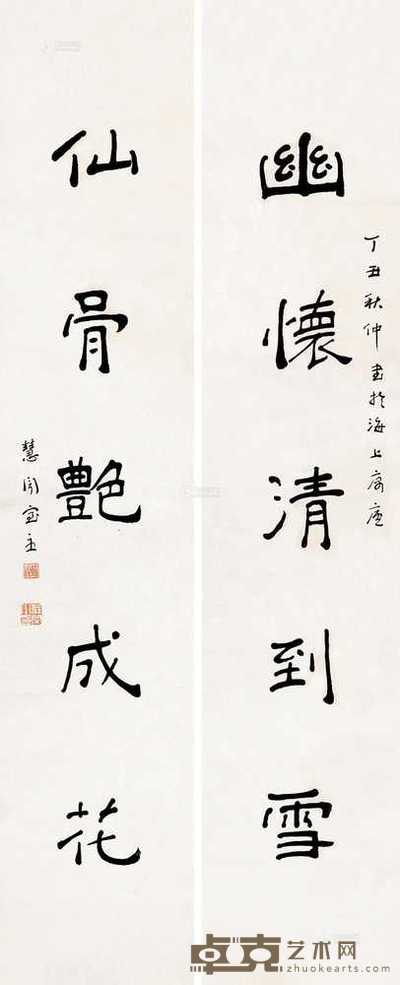 幽懷清到雪
丁丑秋仲書於海上
仙骨艷成花
慧閣室主
卓克艺术网
www.zhuokearts.com